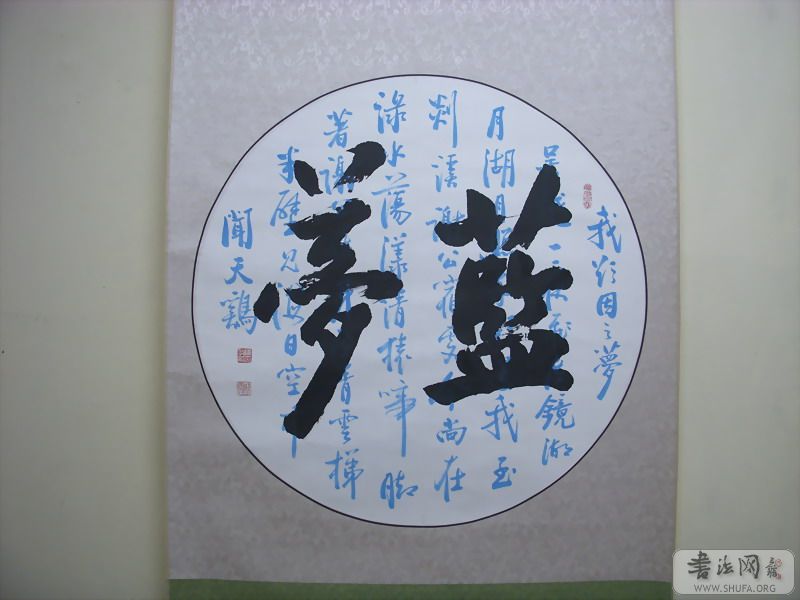 藍夢
我欲因之夢
吳越一夜飛鏡湖
月湖月我至
剡溪謝公宿處今尚在
淥水蕩漾清猿啼脚
著謝青雲梯
半壁見海日空中
聞天鷄
書法网
WWW.SHUFA.ORG